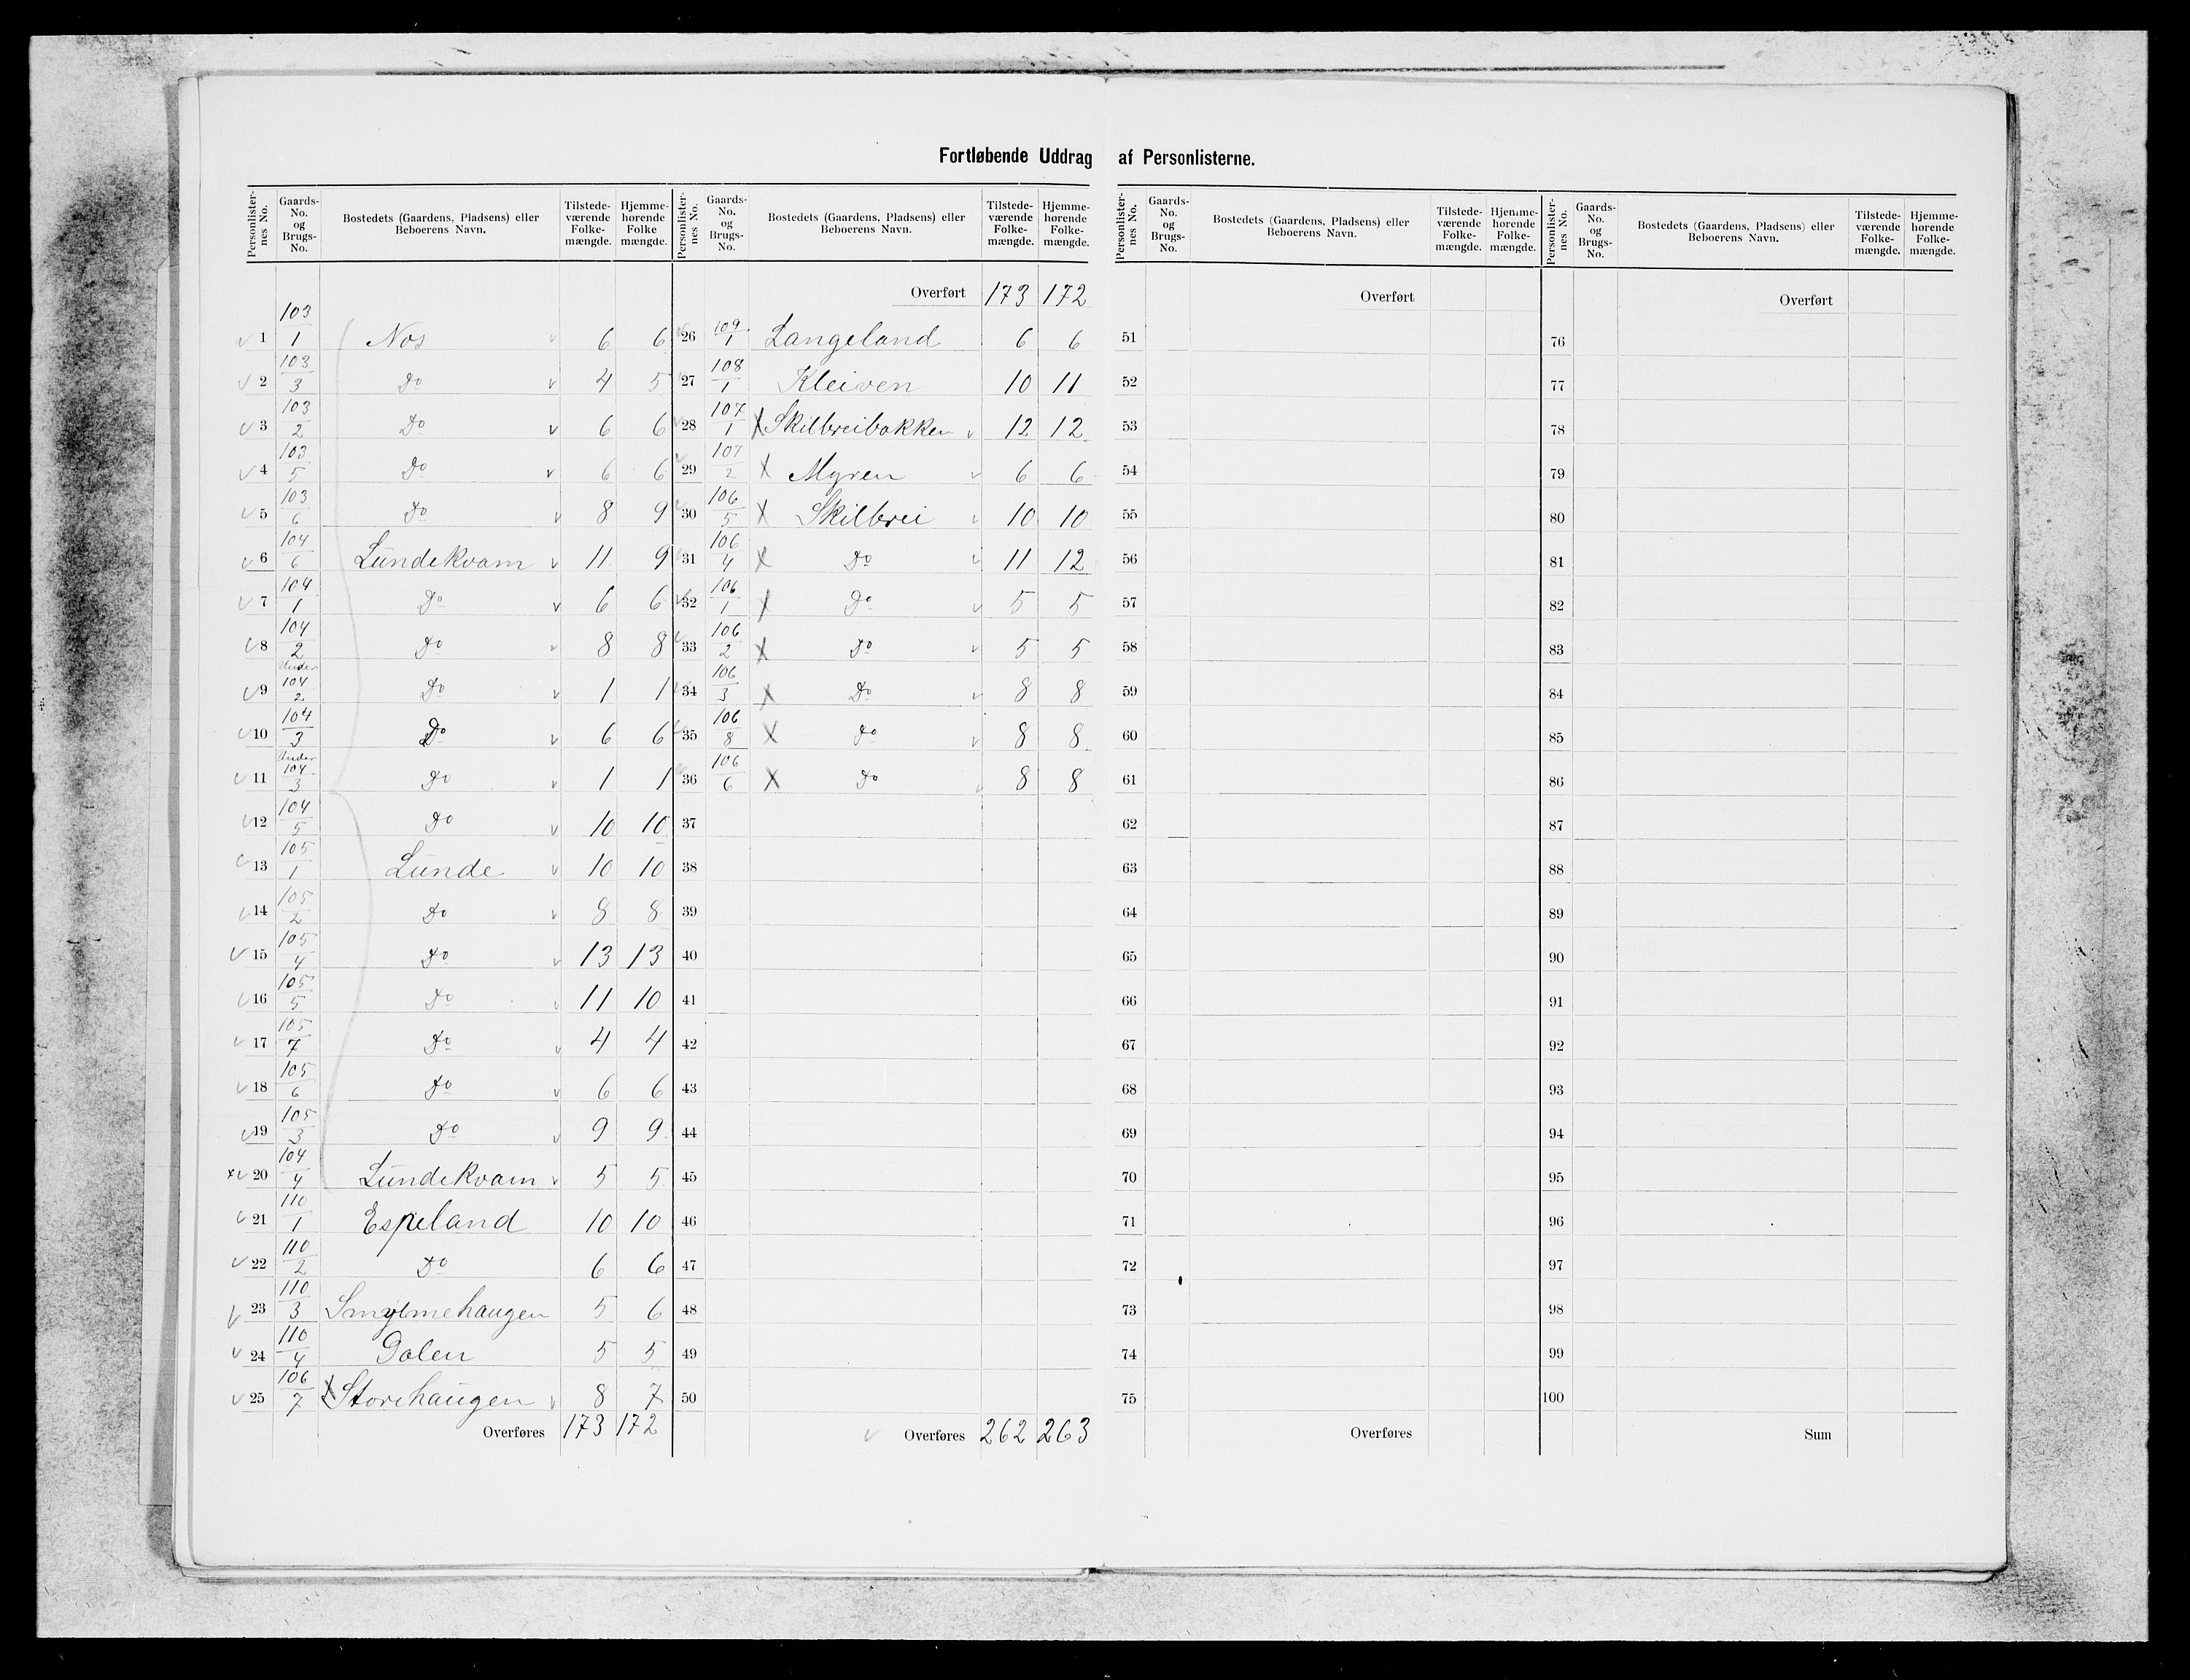 Fortløbende Uddrag af Personlisterne.
Personlister-nes No. | Gaards-No. og Brugs-No. | Bostedets (Gaardens, Pladsens) eller Beboerens Navn. | Tilstede-værende Folke-mængde. | Hjemme-hørende Folke mængde.
1 | 103/1 | Nos | 6 | 6
2 | 103/3 | Do | 4 | 5
3 | 103/2 | Do | 6 | 6
4 | 103/5 | Do | 6 | 6
5 | 103/6 | Do | 8 | 9
6 | 104/6 | Lundekvam | 11 | 9
7 | 104/1 | Do | 6 | 6
8 | 104/2 | Do | 8 | 8
9 | Under 104/2 | Do | 1 | 1
10 | 104/3 | Do | 6 | 6
11 | Under 104/3 | Do | 1 | 1
12 | 104/5 | Do | 10 | 10
13 | 105/1 | Lunde | 10 | 10
14 | 105/2 | Do | 8 | 8
15 | 105/4 | Do | 13 | 13
16 | 105/5 | Do | 11 | 10
17 | 105/7 | Do | 4 | 4
18 | 105/6 | Do | 6 | 6
19 | 105/3 | Do | 9 | 9
x 20 | 104/4 | Lundekvam | 5 | 5
21 | 110/1 | Espeland | 10 | 10
22 | 110/2 | Do | 6 | 6
23 | 110/3 | 5 | 6
24 | 110/4 | Dalen | 5 | 5
25 | 106/7 | X Storehaugen | 8 | 7
Overføres 173 172
Personlister-nes No. | Gaards-No. og Brugs-No. | Bostedets (Gaardens, Pladsens) eller Beboerens Navn. | Tilstede-værende Folke-mængde. | Hjemme-hørende Folke-mængde.
Overført 173 172
26 | 109/1 | Langeland | 6 | 6
27 | 108/1 | Kleiven | 10 | 11
28 | 107/1 | X Skilbreibakken | 12 | 12
29 | 107/2 | X Myren | 6 | 6
30 | 106/5 | X Skilbrei | 10 | 10
31 | 106/4 | X Do | 11 | 12
32 | 106/1 | X Do | 5 | 5
33 | 106/2 | X Do | 5 | 5
34 | 106/3 | X Do | 8 | 8
35 | 106/8 | X Do | 8 | 8
36 | 106/6 | X Do | 8 | 8
37
38
39
40
41
42
43
44
45
46
47
48
49
50
Overføres 262 263
Personlister-nes No. | Gaards-No. og Brugs-No. | Bostedets (Gaardens, Pladsens) eller Beboerens Navn. | Tilstede-værende Folke-mængde. | Hjemme-hørende Folke-mængde.
Overført
51
52
53
54
55
56
57
58
59
60
61
62
63
64
65
66
67
68
69
70
71
72
73
74
75
Overføres
Personlister-nes No. | Gaards-No. og Brugs-No. | Bostedets (Gaardens, Pladsens) eller Beboerens Navn. | Tilstede-værende Folke-mængde. | Hjemme-hørende Folke-mængde.
Overført
76
77
78
79
80
81
82
83
84
85
86
87
88
89
90
91
92
93
94
95
96
97
98
99
100
Sum